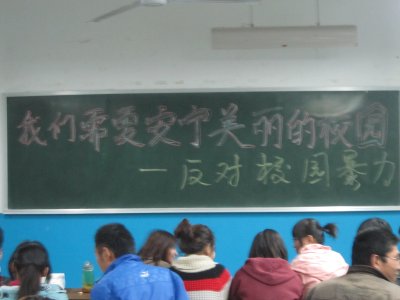 我们需要安宁美丽的校园
—反对校园暴力